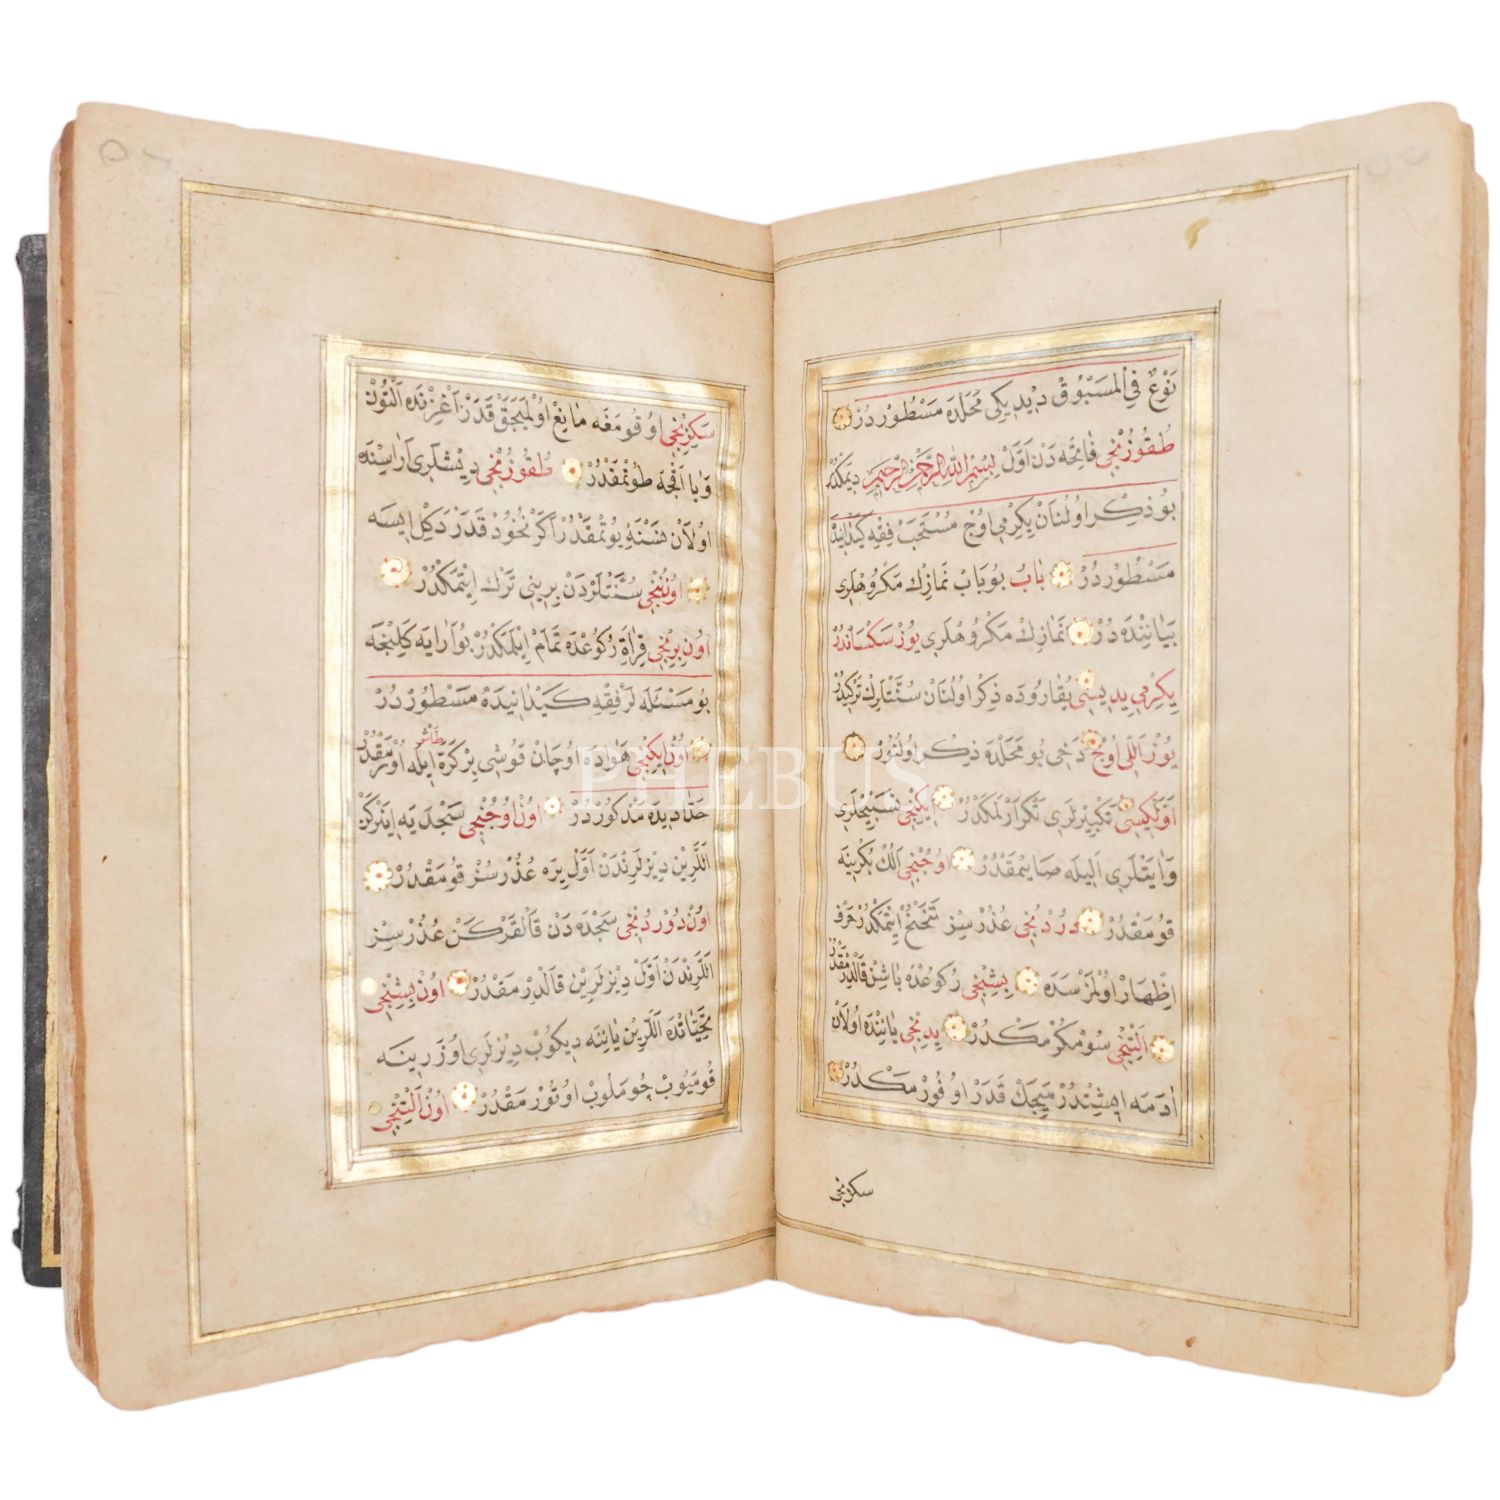 نَوْعٌ فِي الْمَسْبُوقْ دِيدِيكِي مَحَلْدَه مَسْطُورْدُرْ
طُقُوزُنْجِي فَاتِحَه دَنْ اَوَّلْ بِسْمِ اللهِ الرَّحْمٰنِ الرَّحِيمِ دِيمَكْدُرْ
بُو ذِكْر اُولُنَانْ يِكِرْمِي اُوچْ مُسْتَحَبْ فِقْهِ كَيْدَانِيدَه
مَسْطُورْدُرْ بَابْ بُو بَابْ نَمَازِكْ مَكْرُوهْلَرِي
بَيَانِنْدَه دُرْ نَمَازِكْ مَكْرُوهْلَرِي يُوزْ سَكْسَانْدُرْ
يِكِرْمِي يِدِيسِي يُقَارُودَه ذِكْر اُولُنَانْ سُنَّتْلَرِكْ تَرْكِيدُرْ
يُوزْ اَللِّي اُوچْ دَخِي بُو مَحَلْدَه ذِكْر اُولُنُورْ
اَوَّلْكِيسِي تَكْبِيرْلَرِي تَكْرَارْلَمَكْدُرْ اِيكِنْجِي تَسْبِيحْلَرِي
وَاٰيَتْلَرِي اَلِيلَه صَايْمَقْدُرْ اُوچُنْجِي اَلِنْ بُكْرِينَه
قُومَقْدُرْ دُرْدُنْجِي عُذُرْسِزْ تَنَحْنُحْ اِيتْمَكْدُرْ حَرْف
اِظْهَارْ اُولْمَزْسَه بِشِنْجِي رُكُوعْدَه بَاشِنْ قَالْدِرْمَقْدُرْ
اَلْتِنْجِي سُومْكُرْمَكْدُرْ يِدِنْجِي يَانِنْدَه اُولَانْ
اٰدَمَه اِيشِتْدُرْمَيَجَكْ قَدَرْ اُوفُورْمَكْدُرْ
سكزنجى
سَكِزِنْجِي اُوقُومَغَه مَانِعْ اُولْمَيَجَقْ قَدَرْ اَغْزِنْدَه اَلْتُونْ
وَيَا اَقْچَه طُوتْمَقْدُرْ طُقُوزُنْجِي دِيشْلَرِي اَرَاسِنْدَه
اُولَانْ نَسْنَه يِي يُوتْمَقْدُرْ اَكَرْ نُخُودْ قَدَرْ دَكِلْ اِيسَه
اُونُنْجِي سُنَّتْلَرْدَنْ بِرِينِي تَرْك اِيتْمَكْدُرْ
اُونْ بِرِنْجِي قِرَاءَتِ رُكُوعْدَه تَمَامْ اِيلَمَكْدُرْ بُو اَرَايَه كَلِنْجَه
بُو مَسْئَلَه لَرْ فِقْهِ كَيْدَانِيدَه مَسْطُورْدُرْ
اُونْ اِيكِنْجِي هَوَادَه اُوچَانْ قُوشِي بِرْ كَرَّه طَاشْ اِيلَه اُورْمَقْدُرْ
حَدَّادِيدَه مَذْكُورْدُرْ اُونْ اُوچُنْجِي سَجْدَه يَه اِينَرْكَنْ
اَللَّرِينْ دِيزْلَرِنْدَنْ اَوَّلْ يِرَه عُذُرْسُزْ قُومَقْدُرْ
اُونْ دُورْدُنْجِي سَجْدَه دَنْ قَالْقَرْكَنْ عُذُرْسِزْ
اَللَّرِنْدَنْ اَوَّلْ دِيزْلَرِينْ قَالْدِرْمَقْدُرْ اُونْ بِشِنْجِي
تَحِيَّاتْدَه اَللَّرِينْ يَانِنَه دِيكُوبْ دِيزْلَرِي اُوزَرِينَه
قُومَيُوبْ چُومَلُوبْ اُوتُورْمَقْدُرْ اُونْ اَلْتِنْجِي
PHEBUS